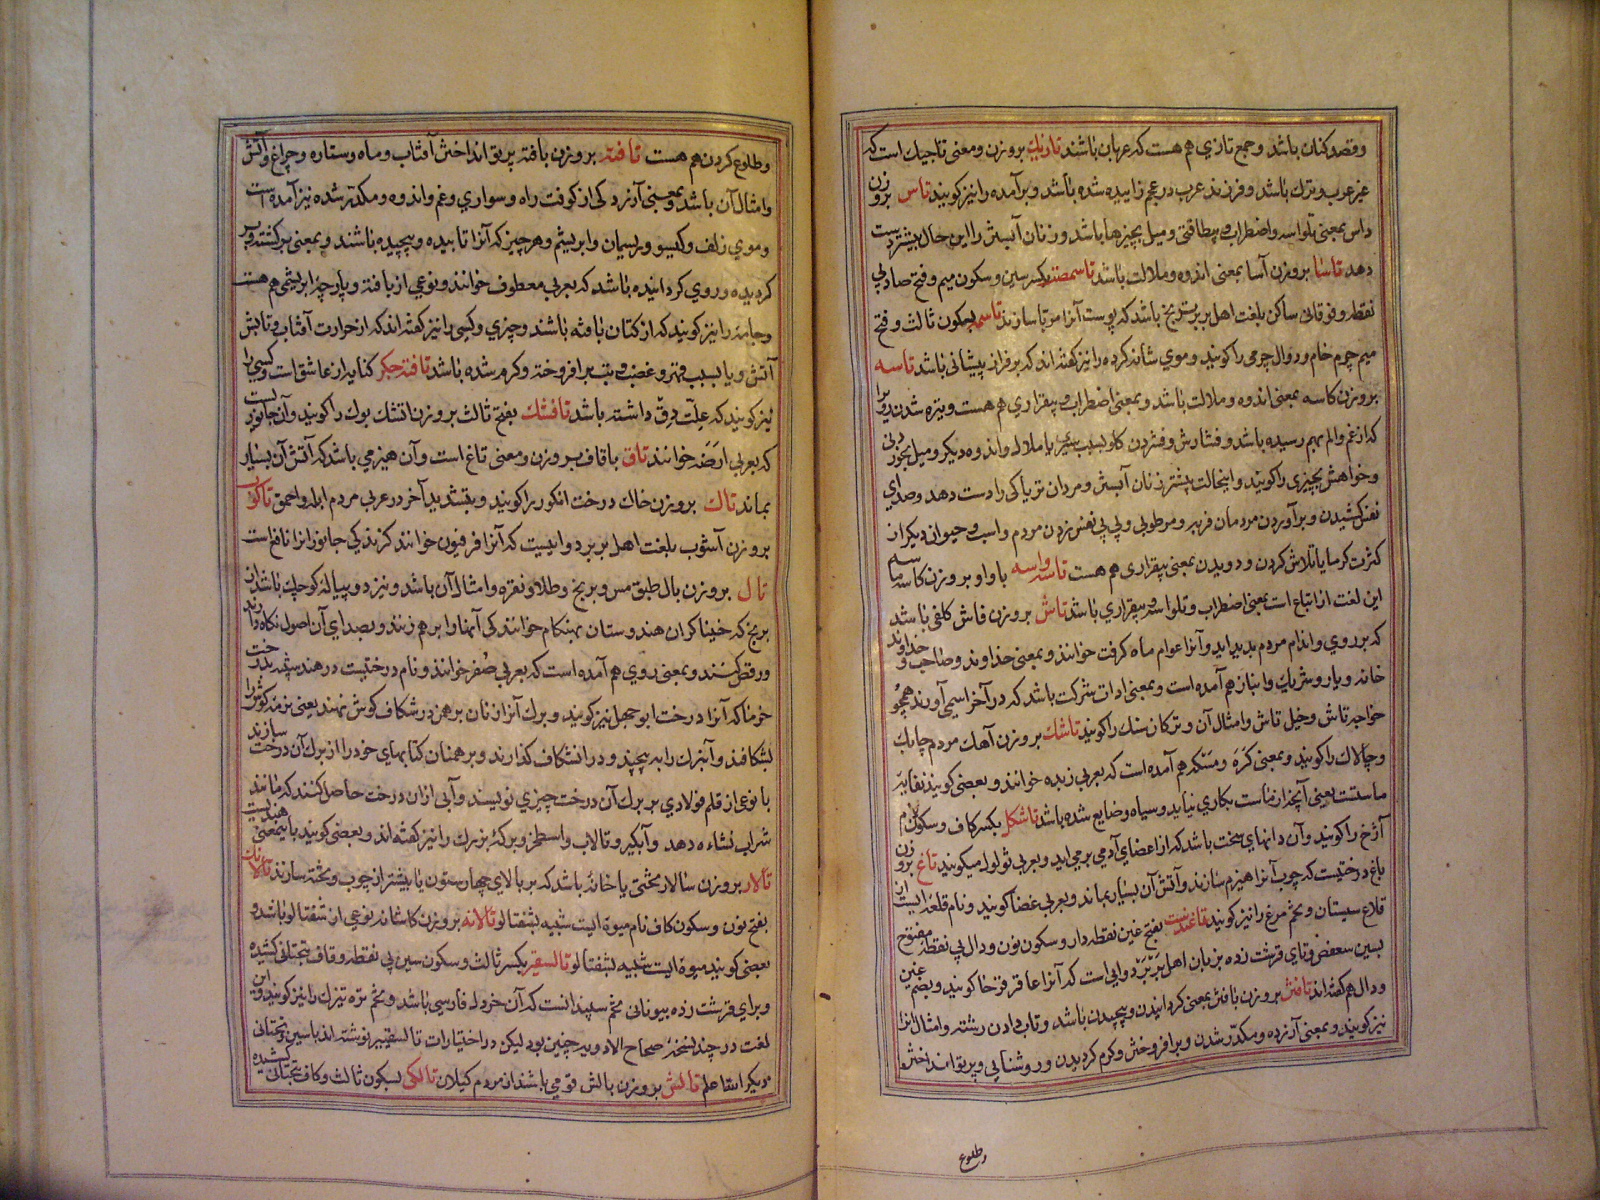 و قصد کنان باشد و جمع تازي هم هست که عربان باشند تازیك بروزن و معنی تاجیك است که
غیر عرب و ترك باشد و فرزند عرب در عجم زاییده شده باشد و برآمده را نیز کویند تاس بروزن
داس بمعنی تلواسه و اضطراب و بیطاقتی و میل بچیزها باشد و زنان آبستن را این حال بیشتر دست
دهد تاسا بروزن آسا بمعنی اندوه و ملالت باشد تاسمصت بکسر سین و سکون میم و فتح صاد بی
نقطه و فوقانی ساکن بلغت اهل بربر بیخ باشد که پوست آنرا مویا سازند تاسمه بسکون ثالث و فتح
میم چرم خام و دوال چرمی را کویند و موي شانه کرده را نیز کفته اند که بر فراز پیشانی باشد تاسه
بروزن کاسه بمعنی اندوه و ملالت باشد و بمعنی اضطراب و بیقراري هم هست و تیره شدن روي را
که از غم و الم بهم رسیده باشد و فشارش و فشردن کلو بسبب سیري یا ملال و اندوه دیکر و میل بخوردنی
و خواهش بچیزي را کویند و اینحالت بیشتر زنان آبستن و مردان تریاکی را دست دهد و صداي
نفس کشیدن و برآوردن مردمان فربه و مرطوبی و پی پی نفس زدن مردم و اسب و حیوان دیکر از
کثرت کرما یا تلاش کردن و دویدن بمعنی بیقراری هم هست تاسه واسه با واو بروزن کاسه ماسه
این لغت از اتباع است بمعنی اضطراب و تلواسه و بیقراري باشد تاش بروزن فاش کلفی باشد
که بر روي و اندام مردم پدید آید و آنرا عوام ماه کرفت خوانند و بمعنی خداوند و صاحب و خداوند
خانه و یار و شریك و انباز هم آمده است و بمعنی ادات شرکت باشد که در آخر اسمی آورند همچو
خواجه تاش و خیل تاش و امثال آن و ترکان سنك را کویند تاشك بروزن آهك مردم چابك
و چالاك را کویند و بمعنی کره و مسکه هم آمده است که بعربی زبده خوانند و بعضی کویند نفایه
ماستست یعنی آنچه از ماست بکاري نیاید و سیاه و ضایع شده باشد تاشکل بکسر کاف و سکون لام
آزخ را کویند و آن دانهاي سخت باشد که از اعضاي آدمی برمی آید و بعربی ثولول میکویند تاغ بروزن
باغ درختیست که چوب آنرا هیزم سازند و آتش آن بسیار بماند و بعربی غضا کویند و نام قلعه ایست از
قلاع سیستان و تخم مرغ را نیز کویند تاغندست بفتح غین نقطه دار و سکون نون و دال بی نقطه مفتوح
بسین سعفص و تاي قرشت زده بزبان اهل بربر دوایی است که آنرا عاقر قرحا کویند و بضم غین
و دال هم کفته اند تافتن بروزن بافتن بمعنی کردانیدن و پیچیدن باشد و تاب دادن رشته و امثال آنرا
نیز کویند و بمعنی آزرده و مکدر شدن و برافروختن و کرم کردیدن و روشنایی و پرتو انداختن
و طلوع
و طلوع کردن هم هست تافته بروزن بافته پرتو انداختن آفتاب و ماه و ستاره و چراغ و آتش
و امثال آن باشد و بمعنی آزردکی از کوفت راه و سواري و غم و اندوه و مکدر شده نیز آمده است
و موي زلف و کیسو و ریسمان و ابریشم و هر چیز که آنرا تابیده و پیچیده باشند و بمعنی برکشته و بر
کردیده و روي کردانیده باشد که بعربی معطوف خوانند و نوعی از بافته و پارچهٔ ابریشمی هم هست
و جامه را نیز کویند که از کتان بافته باشند و چیزي و کسی را نیز کفته اند که از حرارت آفتاب و تابش
آتش و یا بسبب قهر و غضب و تب برافروخته و کرم شده باشد تافته جکر کنایه از عاشق است و کسی را
نیز کویند که علت دق داشته باشد تافشك بفتح ثالث بروزن اتشك بوك را کویند و آن جانوریست
که بعربی ارضه خوانند تاق با قاف بروزن و معنی تاغ است و آن هیزمی باشد که آتش آن بسیار
بماند تاك بروزن خاك درخت انکور را کویند و بتشدید آخر در عربی مردم ابله و احمق تاکوب
بروزن آشوب بلغت اهل بربر دوایست که آنرا فرفیون خوانند کزندکی جانوران را نافع است
تال بروزن بال طبق مس و برنج و طلا و نقره و امثال آن باشد و نیز دو پیاله کوچك باشد از
برنج که خنیاکران هندوستان بهنکام خوانندکی آنها را بر هم زنند و بصداي آن اصول نکاه دارند
و رقص کنند و بمعنی روي هم آمده است که بعربی صفر خوانند و نام درختیست در هند شبیه بدرخت
خرما که آنرا درخت ابوجهل نیز کویند و برك آنرا زنان برهمن در شکاف کوش نهند یعنی نرمه کوش را
بشکافند و آن برك را به پیچند و در آن شکاف کذارند و برهمنان کتابهاي خود را از برك آن درخت سازند
با نوعی از قلم فولادي بر برك آن درخت چیزي نویسند و آبی از آن درخت حاصل کنند که مانند
شراب نشاءه دهد و آبکیر و تالاب و اسطخر و برکهٔ بزرك را نیز کفته اند و بعضی کویند باین معنی هندیست
تالار بروزن سالار تختی یا خانهٔ باشد که بر بالاي چهار ستون یا بیشتر از چوب و تخته سازند تالانك
بفتح نون و سکون کاف نام میوهٔ ایست شبیه بشفتالو تالانه بروزن کاشانه نوعی از شفتالو باشد و
بعضی کویند میوهٔ ایست شبیه بشفتالو تالسقیر بکسر ثالث و سکون سین بی نقطه و قاف بتحتانی کشیده
و براي قرشت زده بیونانی تخم سپندانست که آن خردل فارسی باشد و تخم ترّه تیزك را نیز کویند و این
لغت در چند نسخهٔ صحاح الادویه چنین بود لیکن در اختیارات تالسقیبیر نوشته اند با سین و تحتانی
دیکر الله اعلم تالش بروزن بالش قومی باشند از مردم کیلان تالکی بسکون ثالث و کاف بتحتانی کشیده